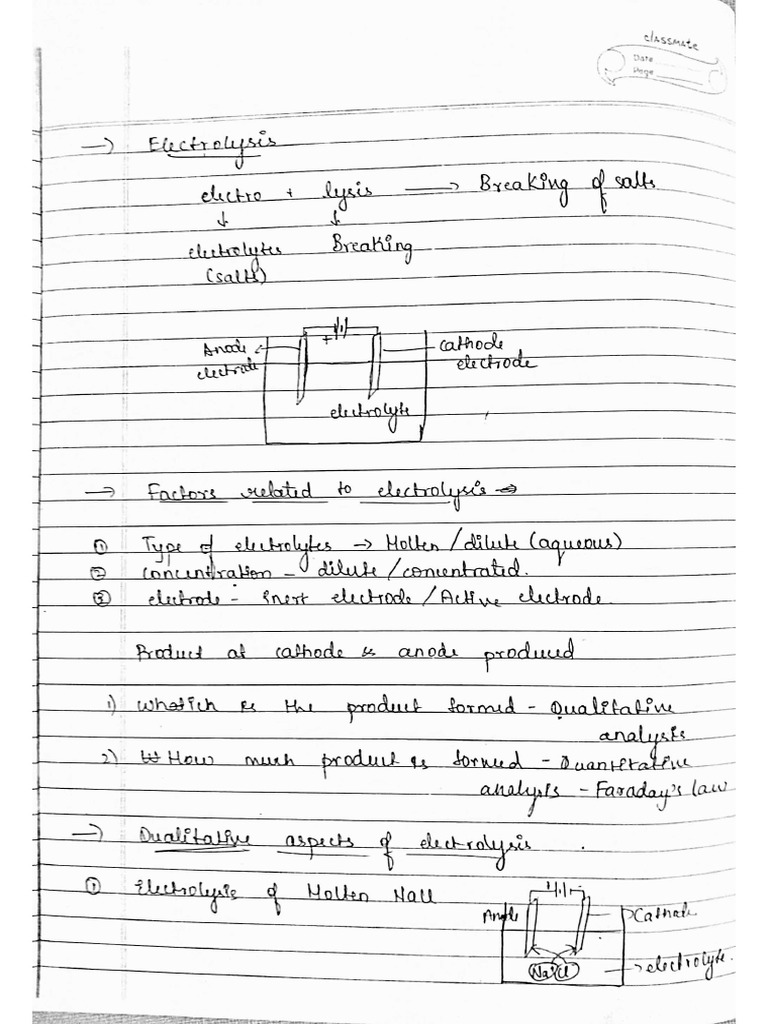 classmate
Date
Page
→ Electrolysis
electro + lysis → Breaking of salts
↓ ↓
electrolytes Breaking
(salts)
+
Anode electrode
cathode electrode
electrolyte
→ Factors related to electrolysis ⇒
① Type of electrolytes → Molten / dilute (aqueous)
② concentration - dilute / concentrated.
③ electrode - Inert electrode / Active electrode
Product at cathode & anode produced
1) Which is the product formed - Qualitative
analysis
2) How much product is formed - Quantitative
analysis - Faraday's law
→ Qualitative aspects of electrolysis .
① Electrolysis of Molten NaCl
Anode
Cathode
Na⁺ Cl⁻
electrolyte.